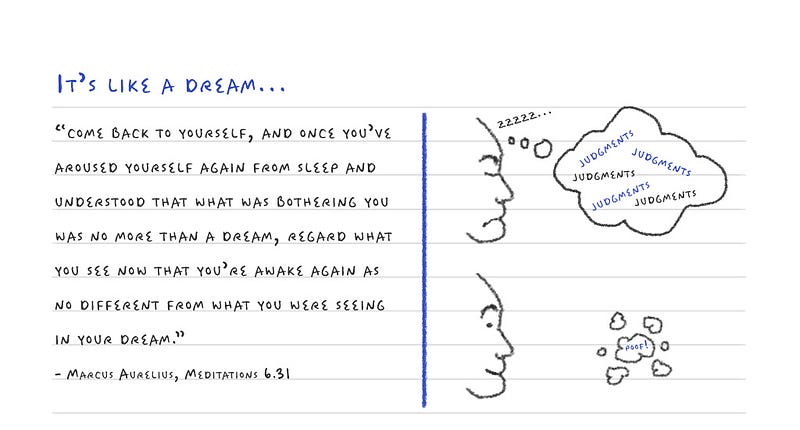 It's like a dream...
"Come back to yourself, and once you've
aroused yourself again from sleep and
understood that what was bothering you
was no more than a dream, regard what
you see now that you're awake again as
no different from what you were seeing
in your dream."
- Marcus Aurelius, Meditations 6.31
zzzzz...
JUDGMENTS
JUDGMENTS
JUDGMENTS
JUDGMENTS
JUDGMENTS
POOF!